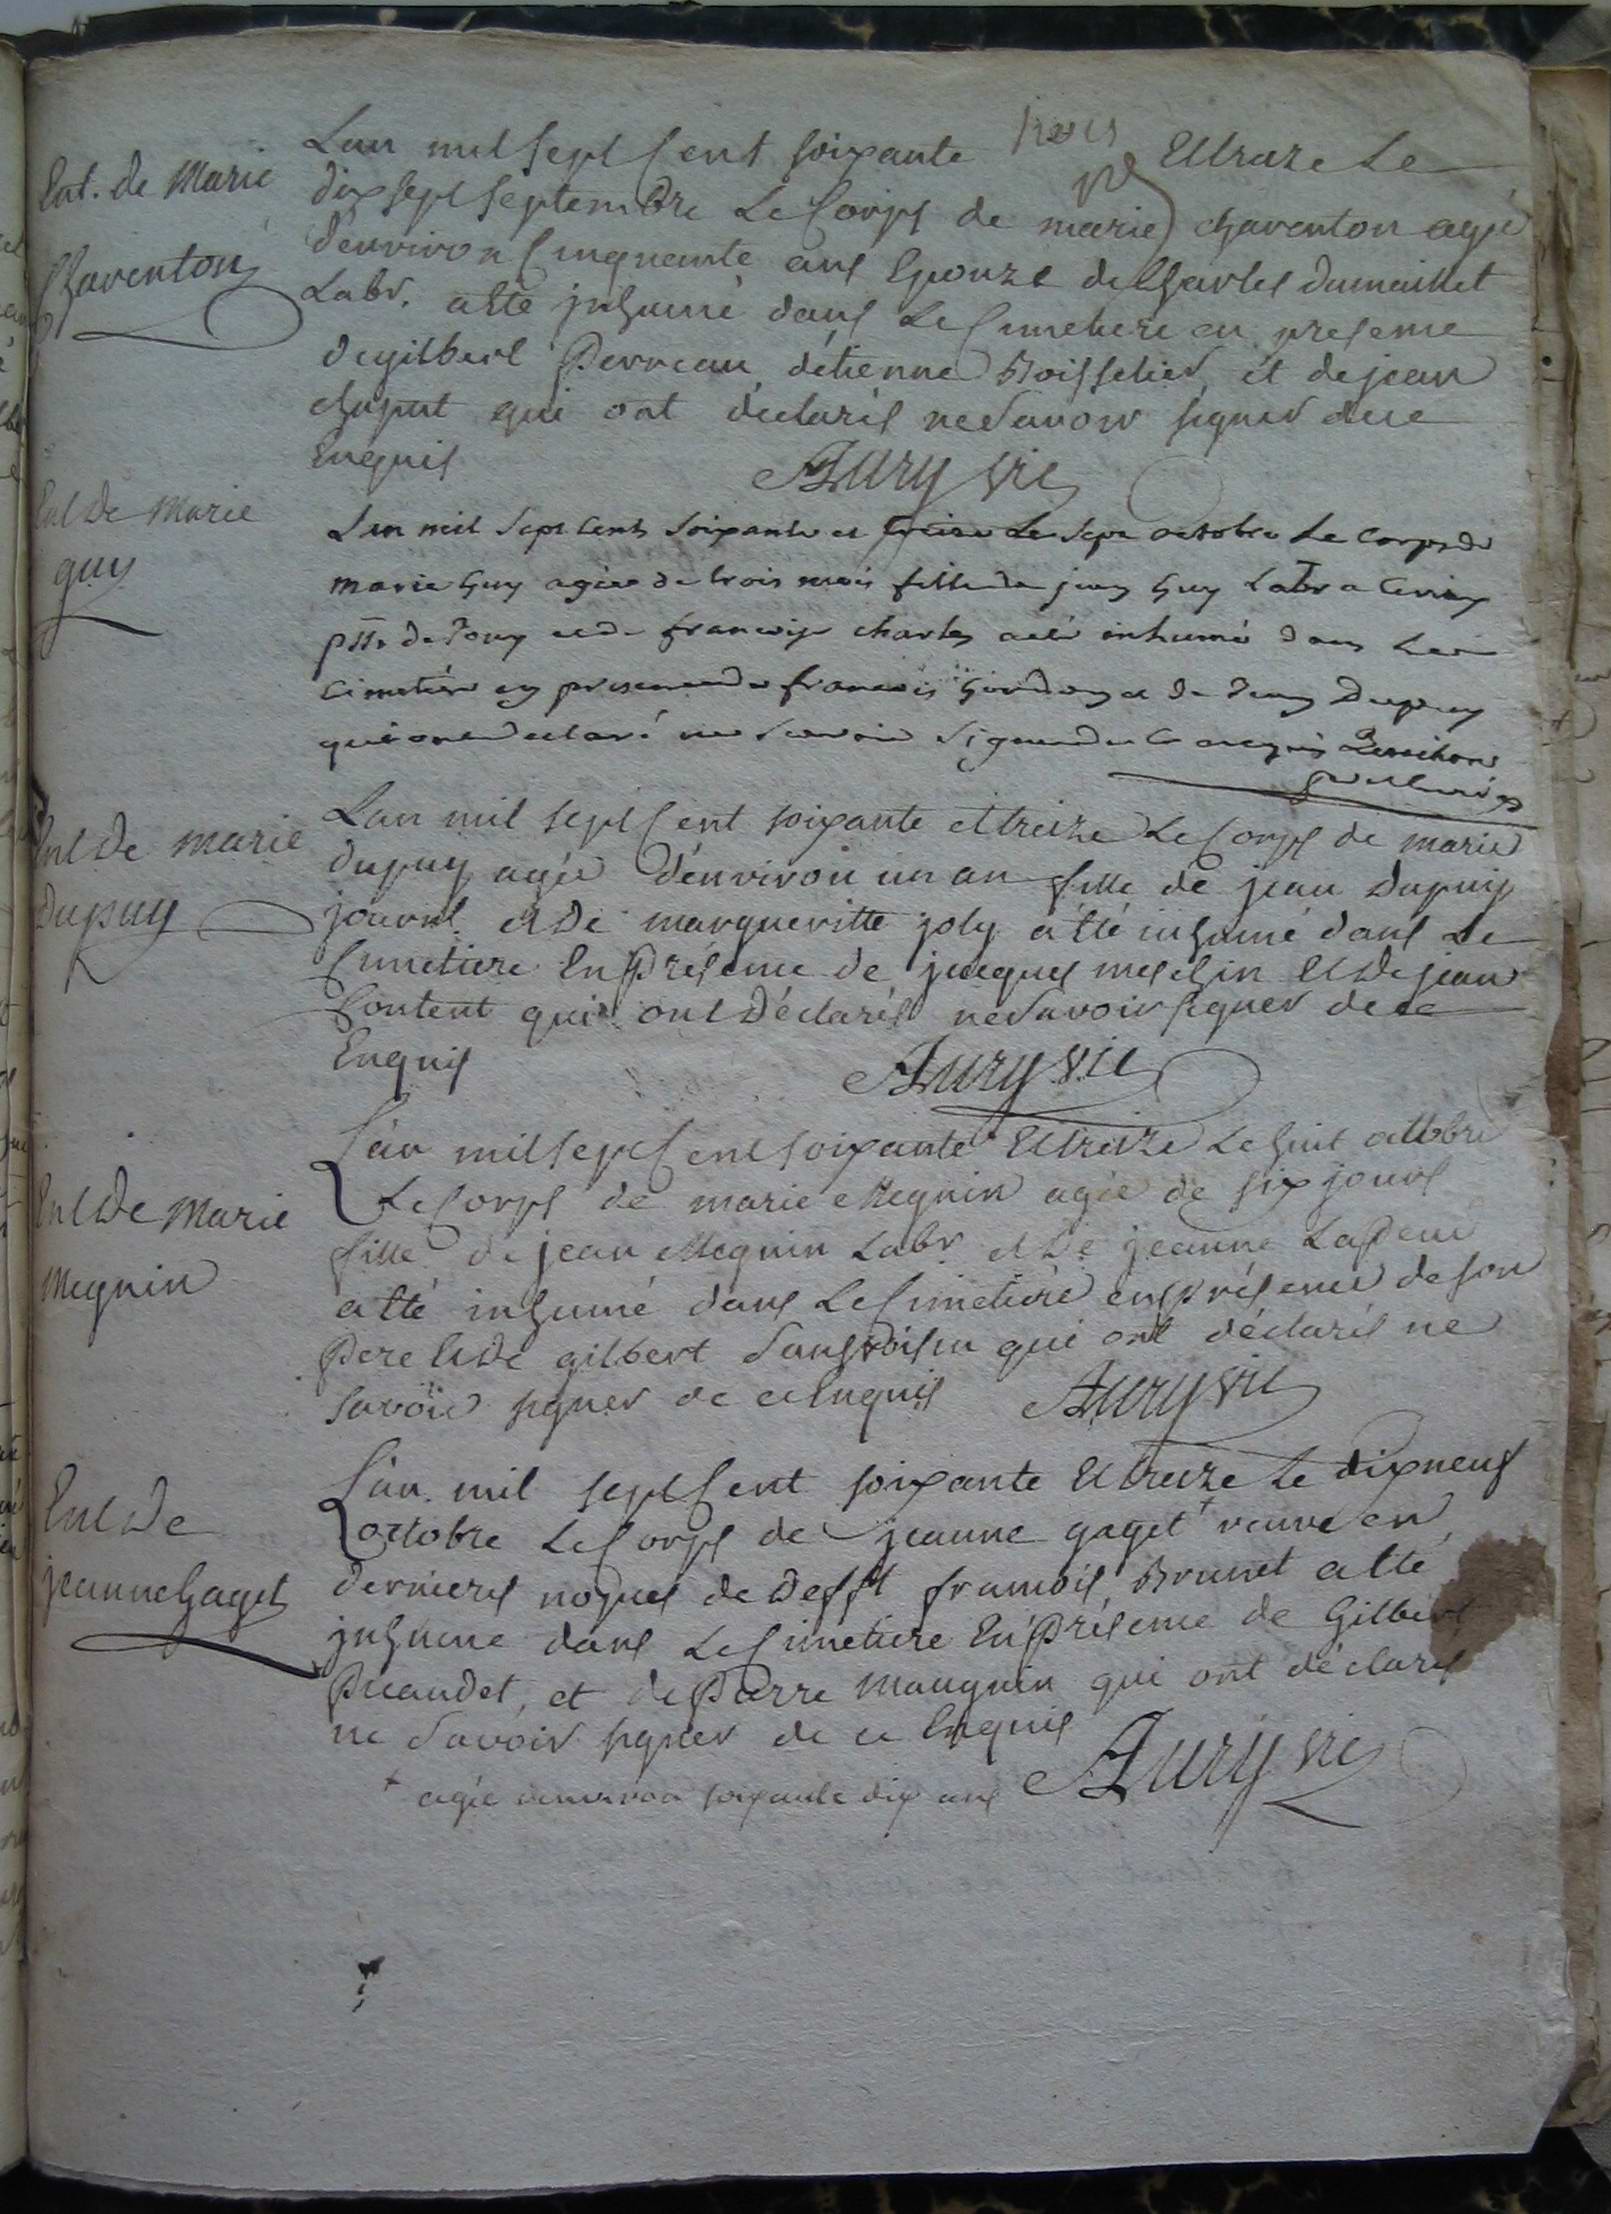 Ent. de Marie
Charenton
Lan mil sept Cent soixante Et treze Le
dix sept septembre Le Corps de marie charenton agée
d'environ Cinquante ans Epouze de Charles dumaillet
Labr. atté jnhumé dans Le Cimetiere en presence
de gilbert Perreau, d'étienne Boisselier, et de jean
chaput qui ont déclarés ne Savoir signer de ce
Enquis
Aury vic
Ent De Marie
guy
L'an mil Sept Cent Soixante et treize Le Sept octobre Le Corps de
marie Guy agée de trois mois fille de jean Guy Labr a
de et de françoise charles a été inhumé dans Le
Cimetière en presence de francois et de Dupuy
qui ont declaré ne Savoir Signer de Ce enquis
Ent De marie
Dupuy
Lan mil sept Cent soixante et treize Le Corps de marie
dupuy agée d'environ un an fille de jean Dupuy
journ. et De margueritte joly atté inhumé dans Le
Cimetiere En Présence de jacques meschin Et De jean
Content qui ont Déclarés ne Savoir signer de ce
Enquis
Aury vic
Ent De Marie
Megnin
L'an mil sept Cent soixante Et treize Le huit octobre
Le Corps de marie Megnin agée de six jours
fille de jean Megnin Labr. et De jeanne
atté inhumé dans Le Cimetière en présence de son
Pere Et De gilbert qui ont déclarés ne
Savoir signer de ce Enquis Aury vic
Ent De
jeanne Gaget
L'an mil sept Cent soixante Et treize Le dix neuf
octobre Le Corps de jeanne gaget + veuve en
dernieres noces de Defft francois Brunet atté
jnhumé dans Le Cimetiere En Présence de Gilbert
Picaudet, et de Pierre Mauguin qui ont déclarés
ne Savoir signer de ce Enquis
+ agée denviron soixante dix ans Aury vic